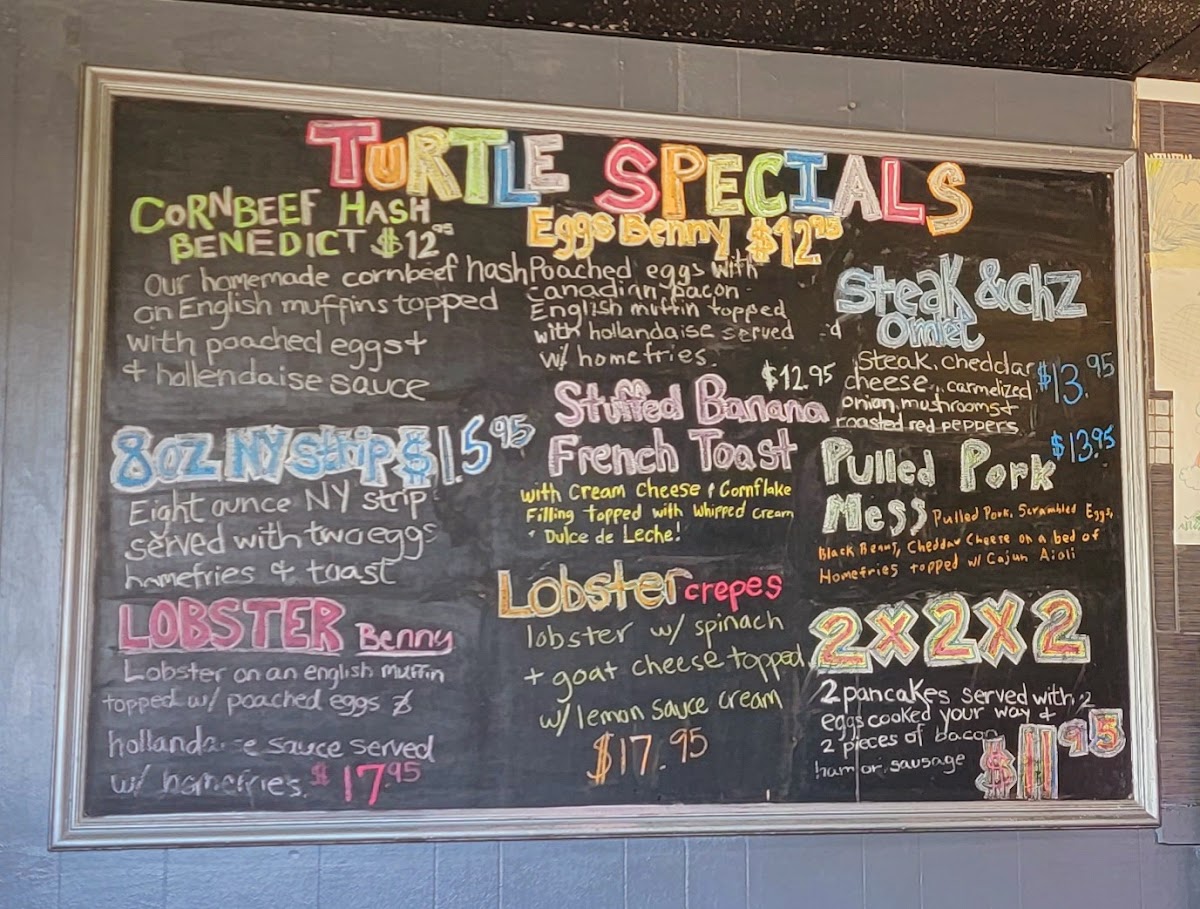 TURTLE SPECIALS
CORNBEEF HASH
BENEDICT $12.95
Our homemade cornbeef hash
on English muffins topped
with poached eggs +
+ hollendaise sauce
8oz NY strip $15.95
Eight ounce NY strip
served with two eggs
homefries + toast
LOBSTER Benny
Lobster on an english muffin
topped w/ poached eggs &
hollandaise sauce served
w/ homefries. $17.95
Eggs Benny $12.95
Poached eggs with
Canadian bacon
English muffin topped
with hollandaise served
w/ homefries.
$12.95
Stuffed Banana
French Toast
with Cream Cheese & Cornflake
Filling topped with Whipped Cream
& Dulce de Leche!
Lobster crepes
lobster w/ spinach
+ goat cheese topped
w/ lemon sauce cream
$17.95
Steak & chz
Omlet
Steak, cheddar
cheese, carmelized
onion, mushrooms +
roasted red peppers
$13.95
$13.95
Pulled Pork
Mess Pulled Pork, Scrambled Eggs,
Black Beans, Cheddar Cheese on a bed of
Homefries topped w/ Cajun Aioli
2x2x2
2 pancakes served with 2
eggs cooked your way +
2 pieces of bacon
ham or sausage
$11.95